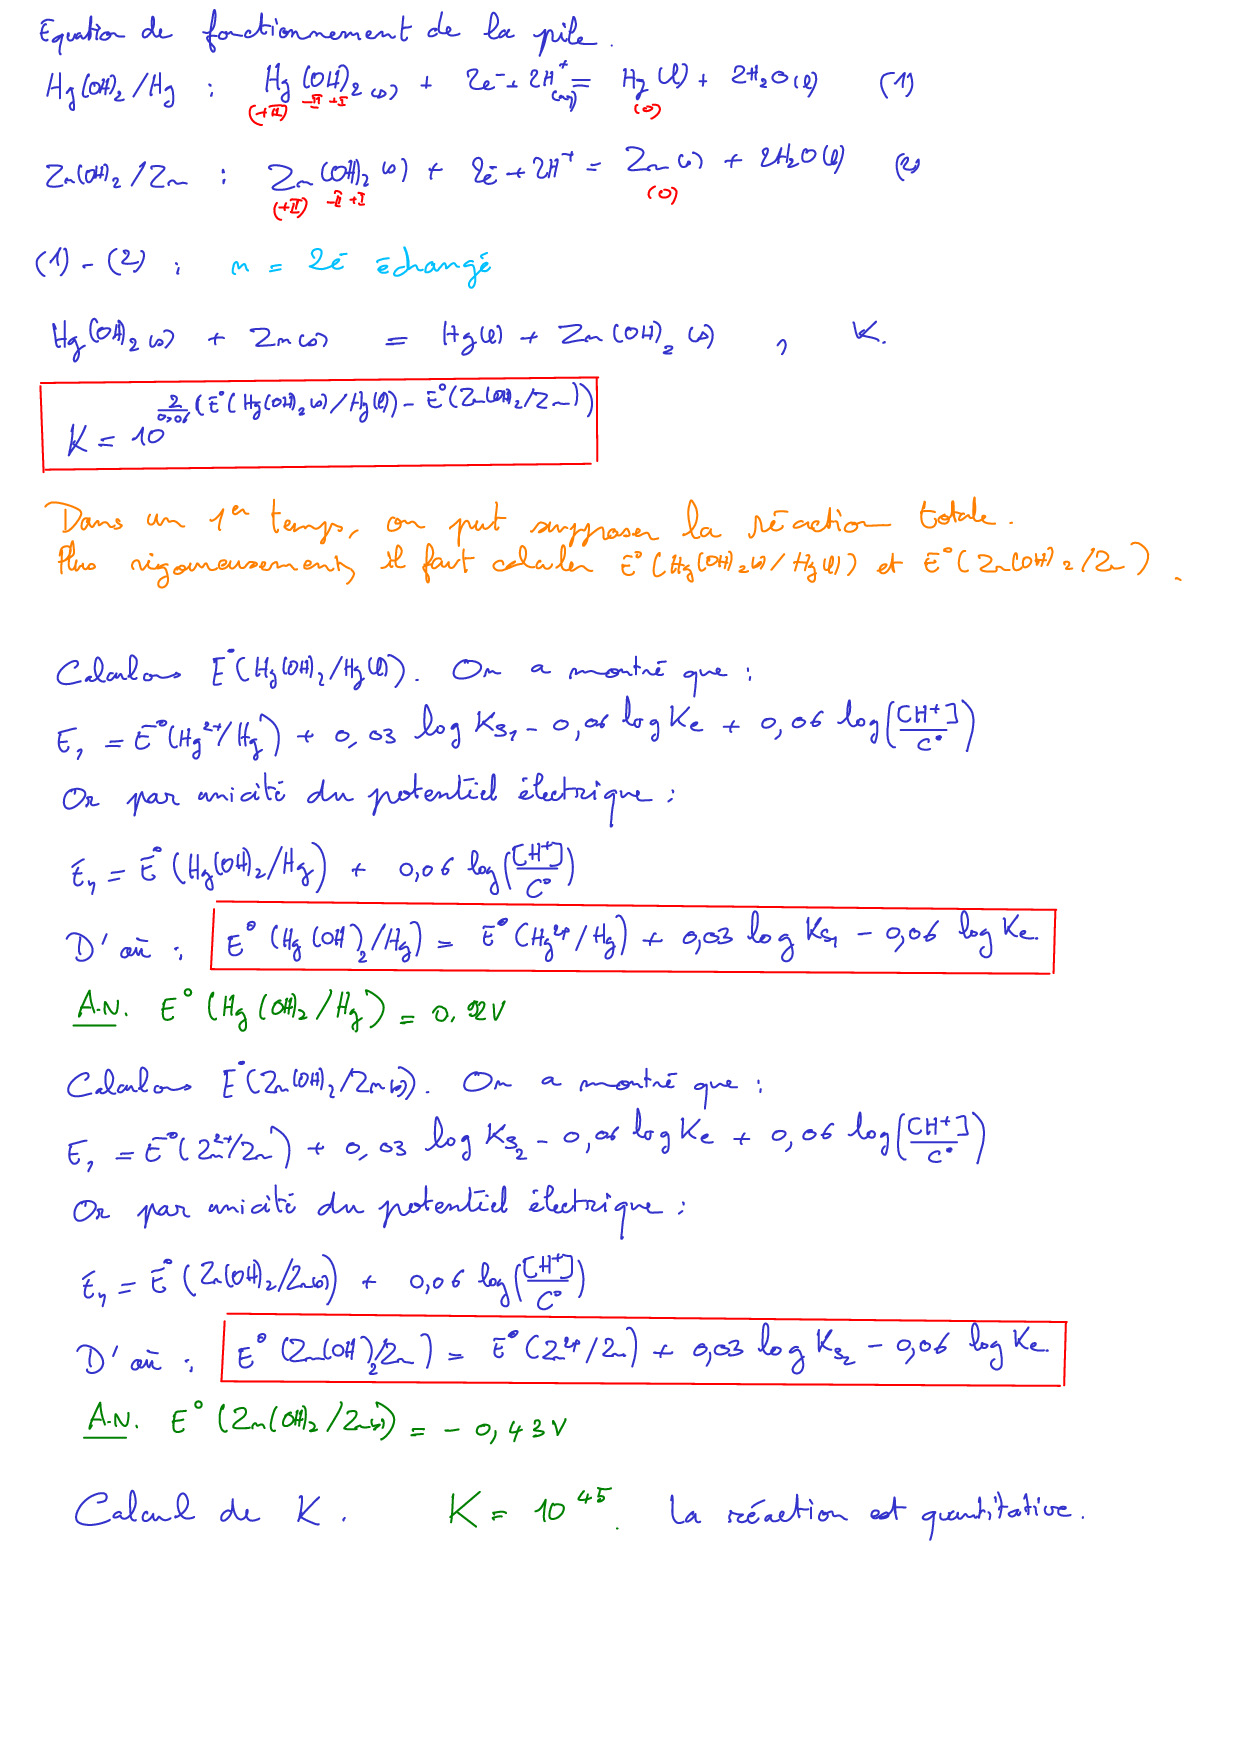 Equation de fonctionnement de la pile.
Hg(OH)₂/Hg : Hg(OH)₂(s) + 2e⁻ + 2H⁺(aq) = Hg(l) + 2H₂O(l) (1)
(+II) -II +I (0)
Zn(OH)₂/Zn : Zn(OH)₂(s) + 2e⁻ + 2H⁺ = Zn(s) + 2H₂O(l) (2)
(+II) -II +I (0)
(1) - (2) : n = 2e⁻ échangé
Hg(OH)₂(s) + Zn(s) = Hg(l) + Zn(OH)₂(s) , K.
K = 10^(2/0,06 (E°(Hg(OH)₂(s)/Hg(l)) - E°(Zn(OH)₂/Zn)))
Dans un 1er temps, on put supposer la réaction totale.
Plus rigoureusement, il faut calculer E°(Hg(OH)₂(s)/Hg(l)) et E°(Zn(OH)₂/Zn).
Calculons E°(Hg(OH)₂/Hg(l)). On a montré que :
E₁ = E°(Hg²⁺/Hg) + 0,03 log Ks₁ - 0,06 log Ke + 0,06 log([H⁺]/C°)
Or par unicité du potentiel électrique :
E₁ = E°(Hg(OH)₂/Hg) + 0,06 log([H⁺]/C°)
D'où : E°(Hg(OH)₂/Hg) = E°(Hg²⁺/Hg) + 0,03 log Ks₁ - 0,06 log Ke.
A.N. E°(Hg(OH)₂/Hg) = 0,92V
Calculons E°(Zn(OH)₂/Zn(s)). On a montré que :
E₁ = E°(Zn²⁺/Zn) + 0,03 log Ks₂ - 0,06 log Ke + 0,06 log([H⁺]/C°)
Or par unicité du potentiel électrique :
E₁ = E°(Zn(OH)₂/Zn(s)) + 0,06 log([H⁺]/C°)
D'où : E°(Zn(OH)₂/Zn) = E°(Zn²⁺/Zn) + 0,03 log Ks₂ - 0,06 log Ke.
A.N. E°(Zn(OH)₂/Zn(s)) = - 0,43V
Calcul de K. K = 10⁴⁵. La réaction est quantitative.